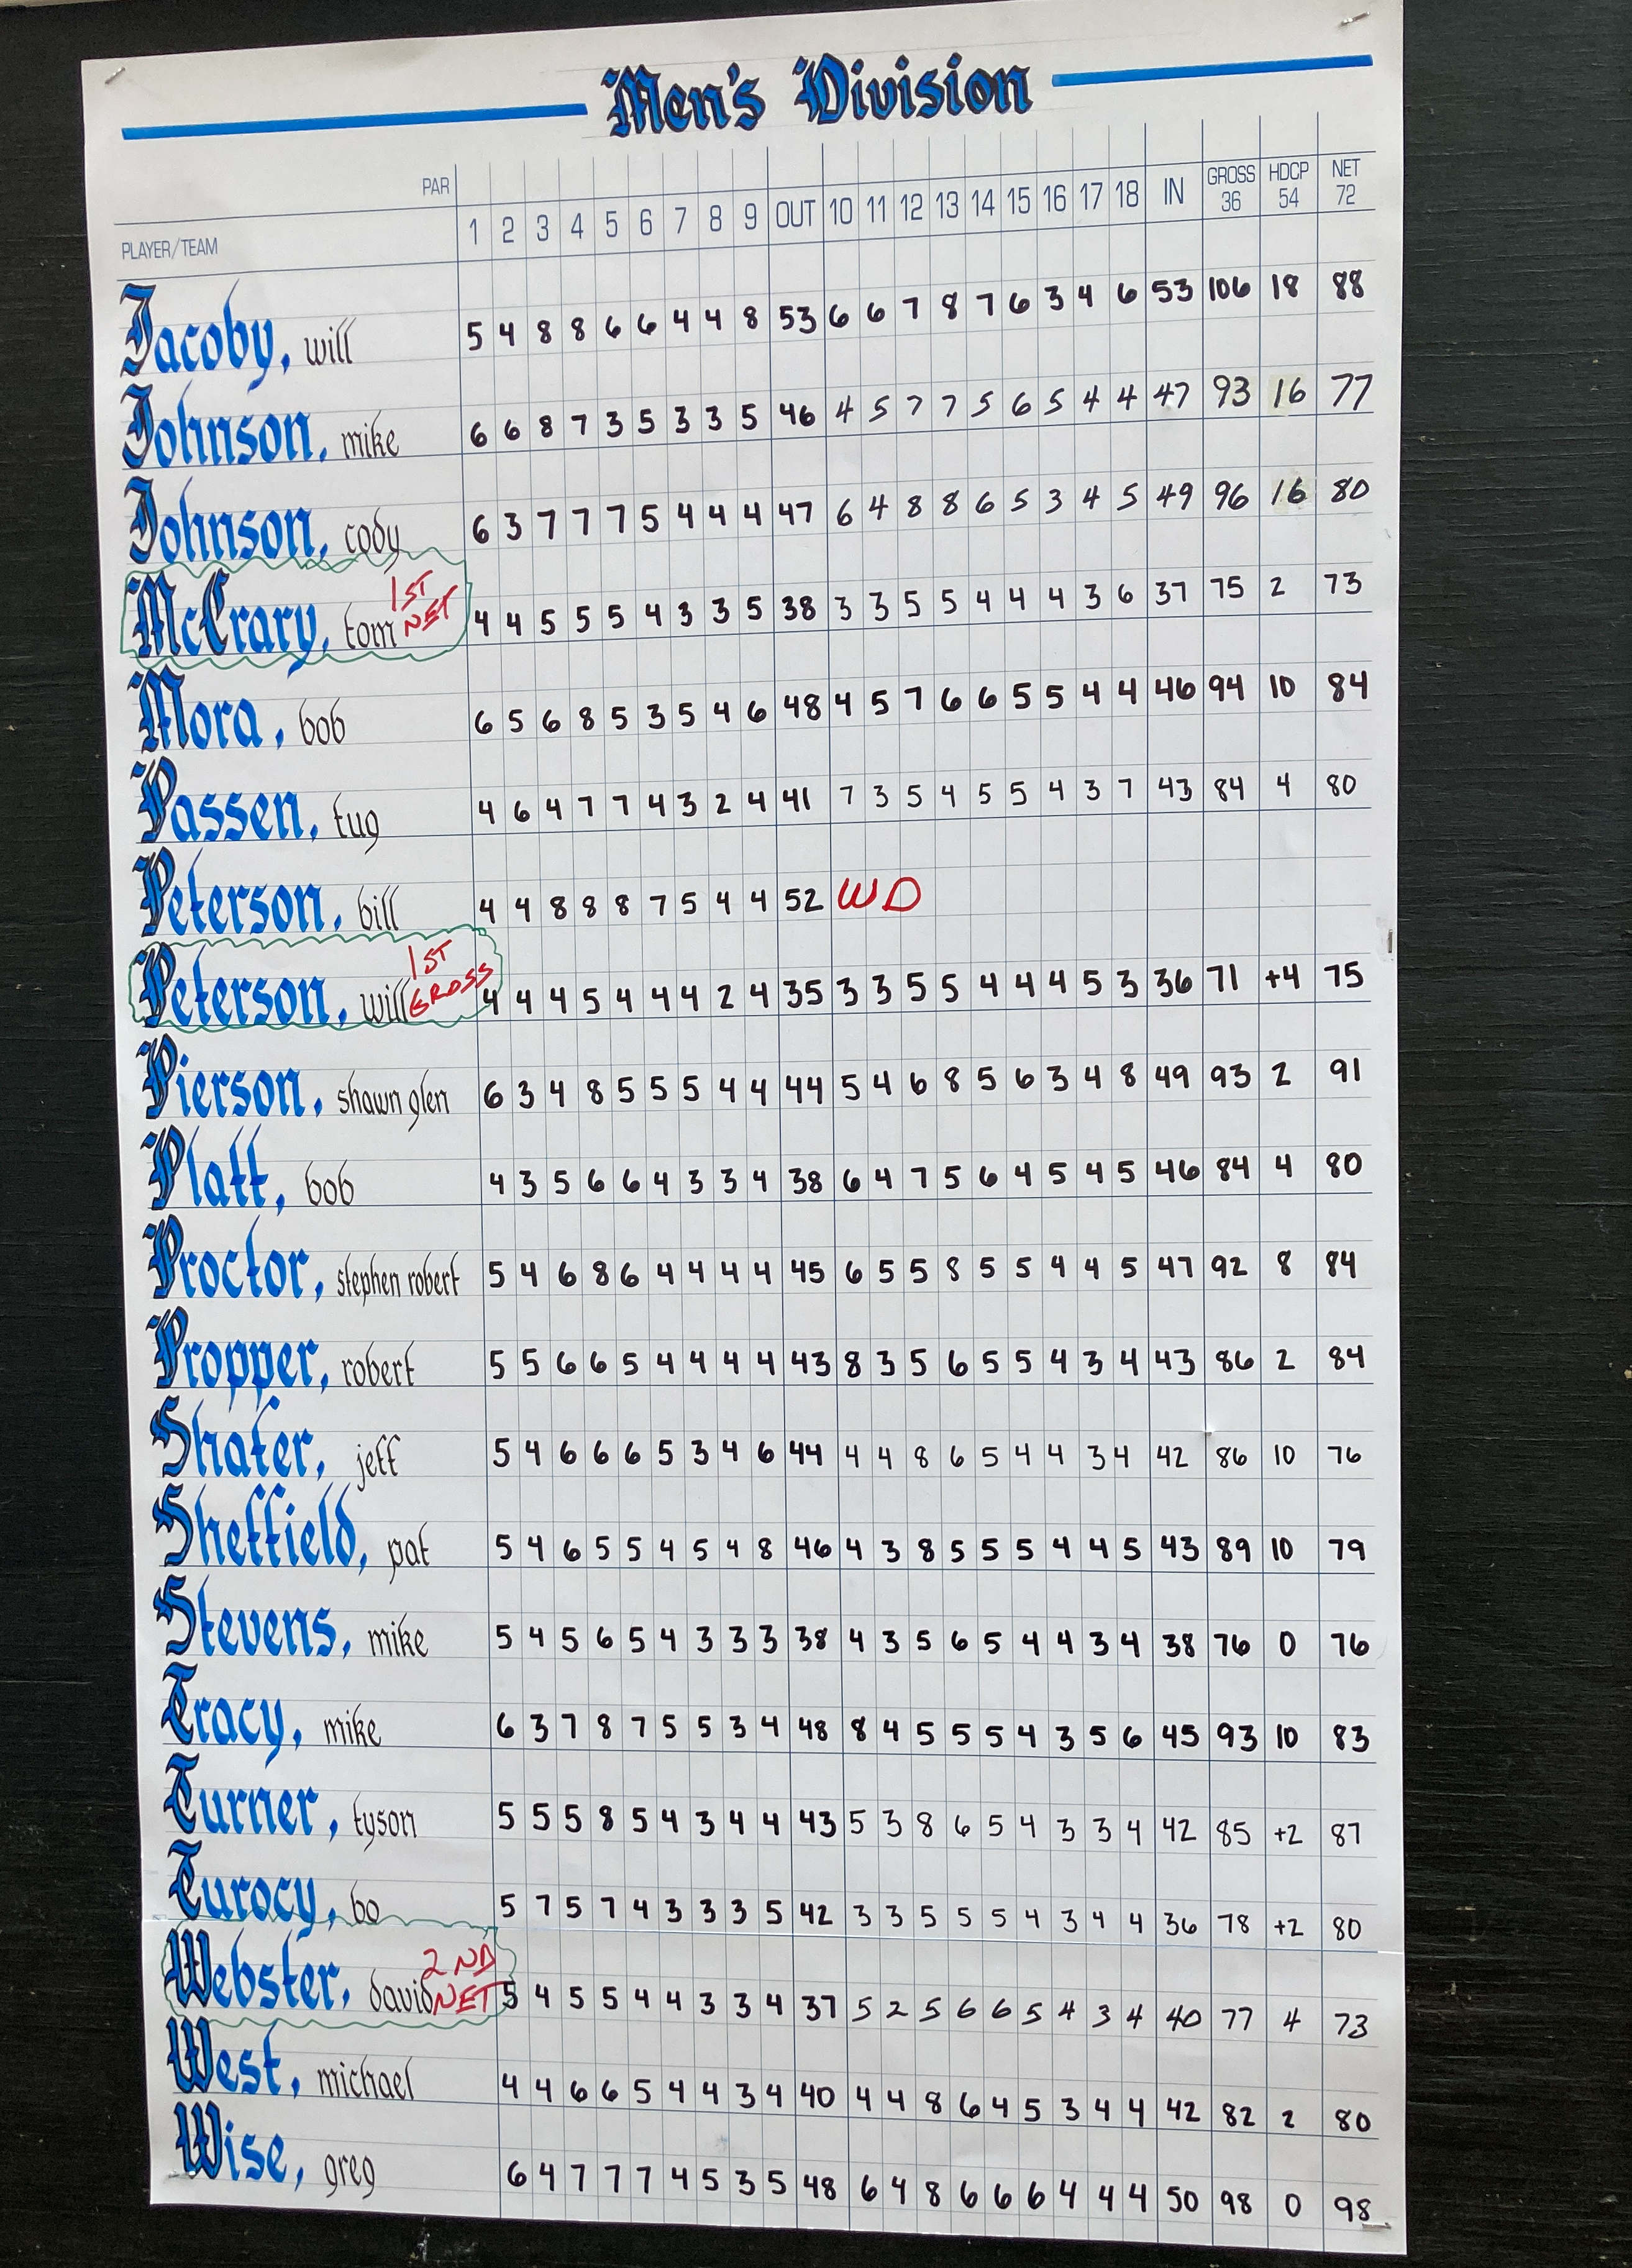 Men's Division
PAR
PLAYER/TEAM 1 2 3 4 5 6 7 8 9 OUT 10 11 12 13 14 15 16 17 18 IN GROSS 36 HDCP 54 NET 72
Jacoby, will 5 4 8 8 6 6 4 4 8 53 6 6 7 8 7 6 3 4 6 53 106 18 88
Johnson, mike 6 6 8 7 3 5 3 3 5 46 4 5 7 7 5 6 5 4 4 47 93 16 77
Johnson, cody 6 3 7 7 7 5 4 4 4 47 6 4 8 8 6 5 3 4 5 49 96 16 80
McCrary, tom 1ST NET 4 4 5 5 5 4 3 3 5 38 3 3 5 5 4 4 4 3 6 37 75 2 73
Mora, bob 6 5 6 8 5 3 5 4 6 48 4 5 7 6 6 5 5 4 4 46 94 10 84
Passen, tug 4 6 4 7 7 4 3 2 4 41 7 3 5 4 5 5 4 3 7 43 84 4 80
Peterson, bill 4 4 8 8 8 7 5 4 4 52 WD
Peterson, will 1ST GROSS 4 4 4 5 4 4 4 2 4 35 3 3 5 5 4 4 4 5 3 36 71 +4 75
Pierson, shawn glen 6 3 4 8 5 5 5 4 4 44 5 4 6 8 5 6 3 4 8 49 93 2 91
Platt, bob 4 3 5 6 6 4 3 3 4 38 6 4 7 5 6 4 5 4 5 46 84 4 80
Proctor, stephen robert 5 4 6 8 6 4 4 4 4 45 6 5 5 8 5 5 4 4 5 47 92 8 84
Propper, robert 5 5 6 6 5 4 4 4 4 43 8 3 5 6 5 5 4 3 4 43 86 2 84
Shafer, jeff 5 4 6 6 6 5 3 4 6 44 4 4 8 6 5 4 4 3 4 42 86 10 76
Sheffield, pat 5 4 6 5 5 4 5 4 8 46 4 3 8 5 5 5 4 4 5 43 89 10 79
Stevens, mike 5 4 5 6 5 4 3 3 3 38 4 3 5 6 5 4 4 3 4 38 76 0 76
Tracy, mike 6 3 7 8 7 5 5 3 4 48 8 4 5 5 5 4 3 5 6 45 93 10 83
Turner, tyson 5 5 5 8 5 4 3 4 4 43 5 3 8 6 5 4 3 3 4 42 85 +2 87
Turocy, bo 5 7 5 7 4 3 3 3 5 42 3 3 5 5 5 4 3 4 4 36 78 +2 80
Webster, david 2ND NET 5 4 5 5 4 4 3 3 4 37 5 2 5 6 6 5 4 3 4 40 77 4 73
West, michael 4 4 6 6 5 4 4 3 4 40 4 4 8 6 4 5 3 4 4 42 82 2 80
Wise, greg 6 4 7 7 7 4 5 3 5 48 6 4 8 6 6 6 4 4 4 50 98 0 98